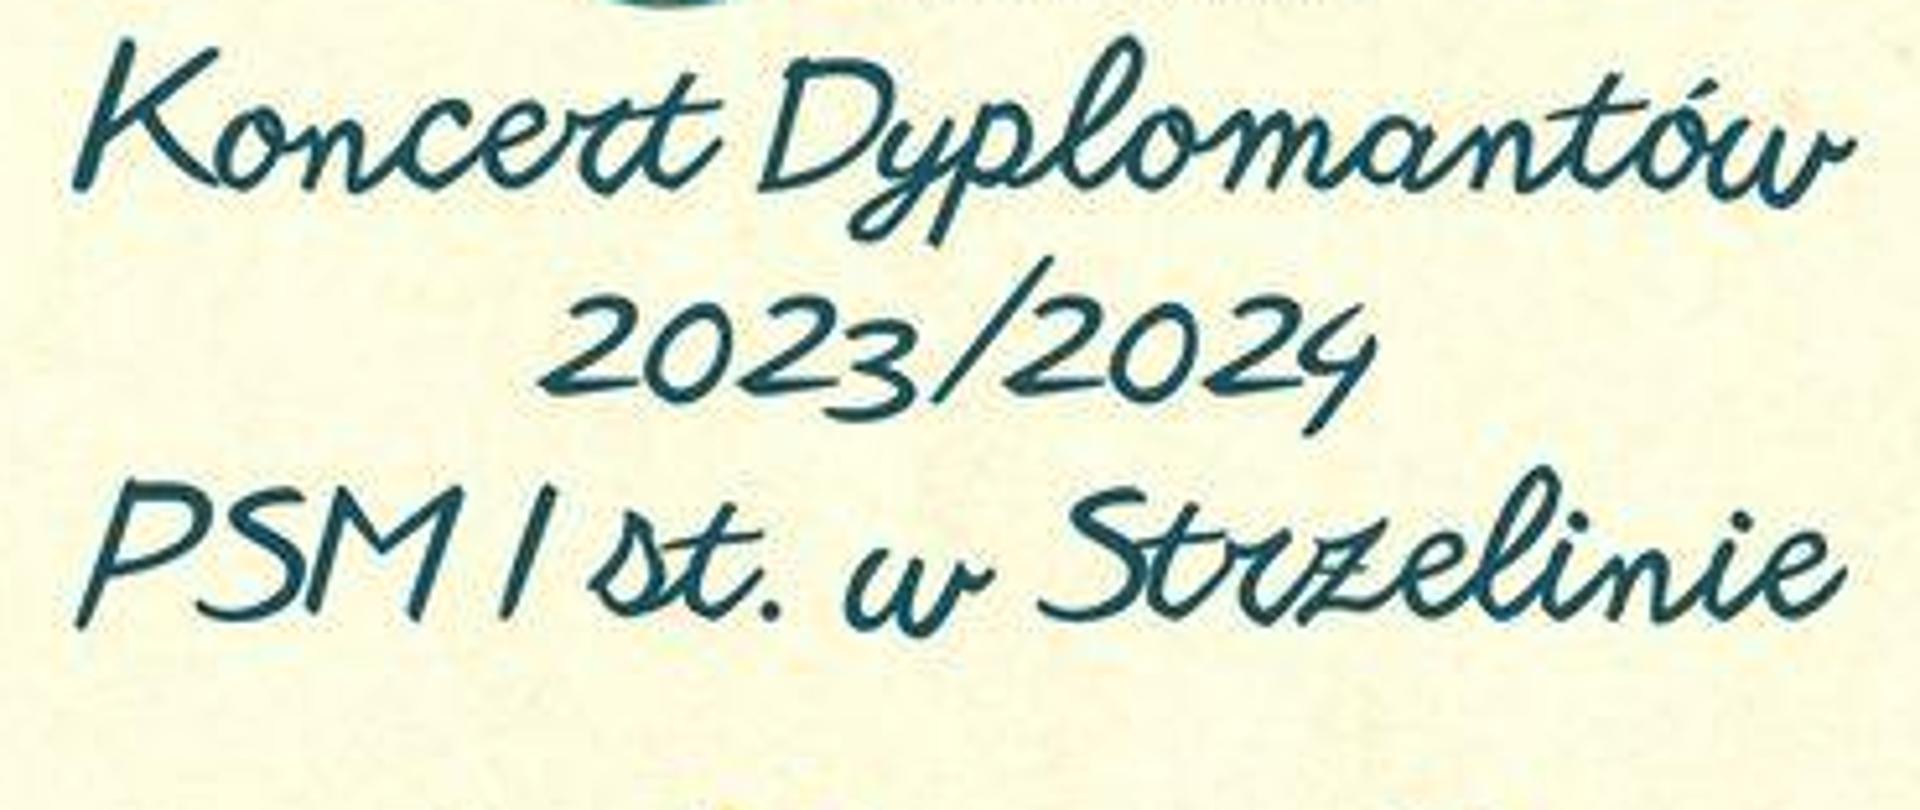 Koncert Dyplomantów
2023/2024
PSM I st. w Strzelinie